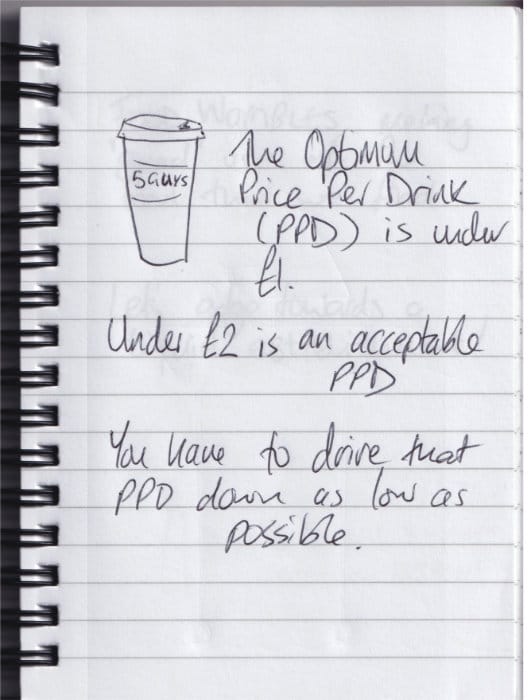 5 Guys
The Optimum
Price Per Drink
(PPD) is under
£1.
Under £2 is an acceptable
PPD
You have to drive that
PPD down as low as
possible.